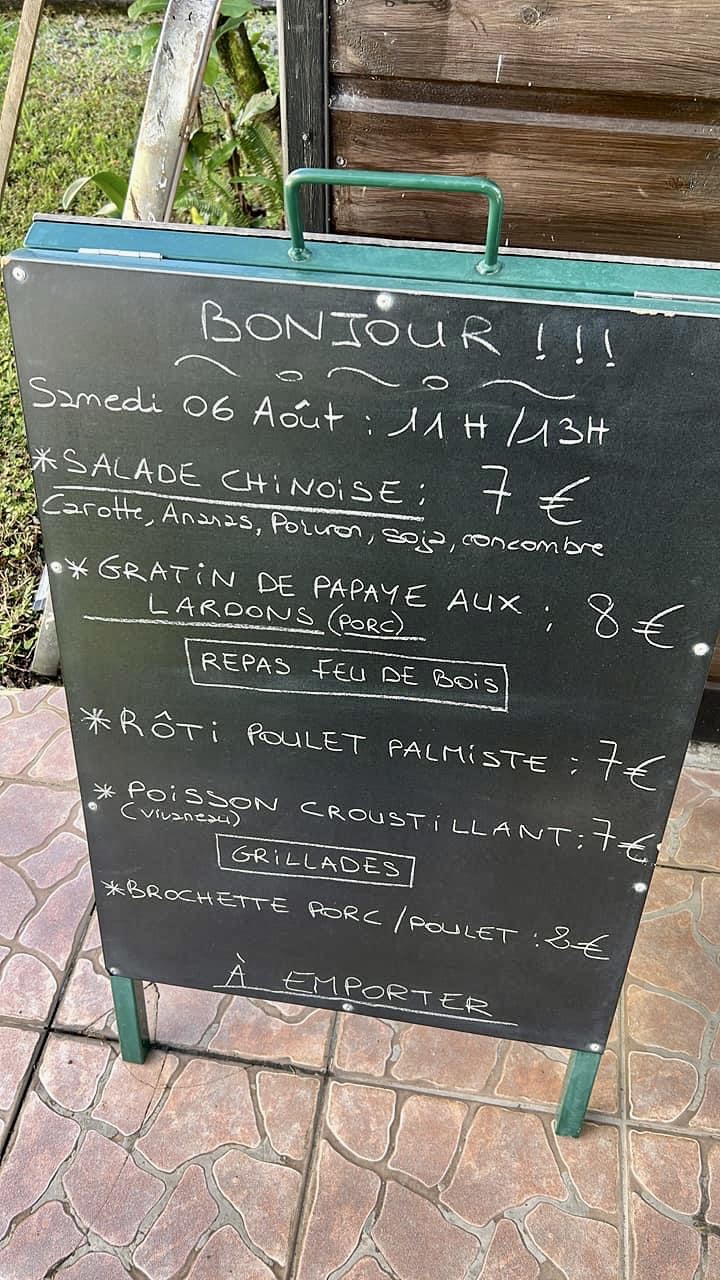 BONJOUR !!!
Samedi 06 Août : 11H/13H
*SALADE CHINOISE : 7 €
Carotte, Ananas, Poivron, soja, concombre
*GRATIN DE PAPAYE AUX : 8 €
LARDONS (PORC)
REPAS FEU DE BOIS
*RÔTI POULET PALMISTE : 7€
*POISSON CROUSTILLANT : 7€
(vivaneau)
GRILLADES
*BROCHETTE PORC/POULET : 2€
À EMPORTER